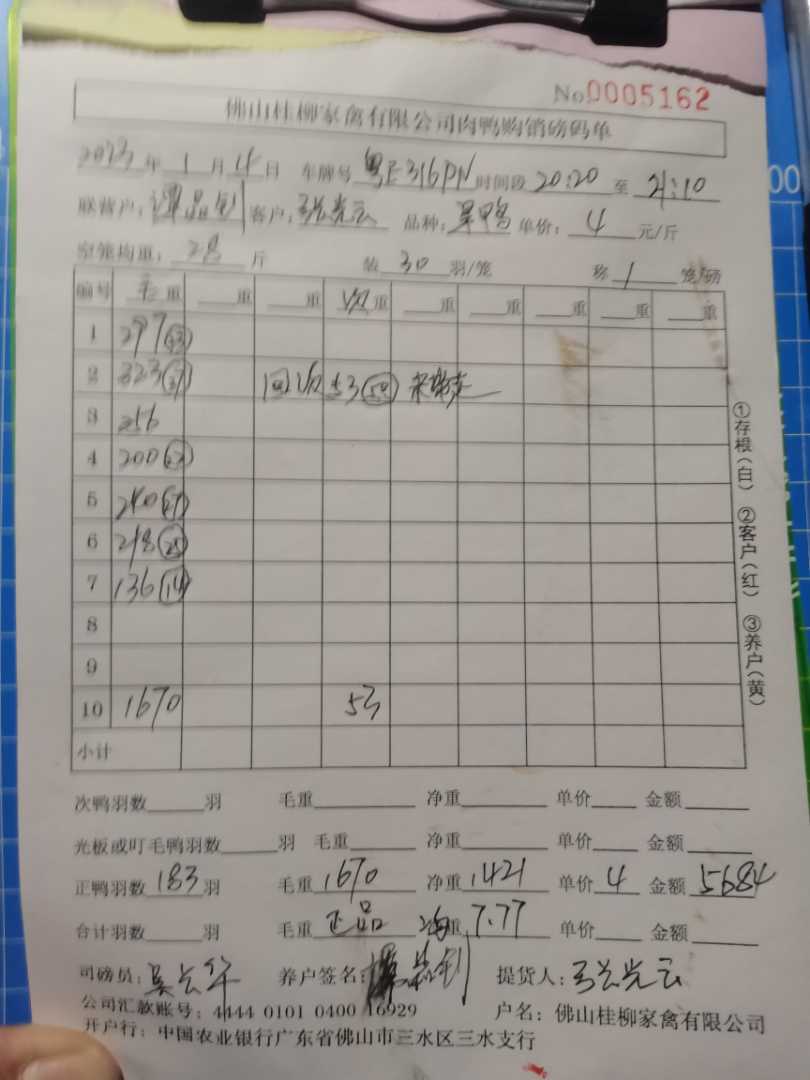 No.0005162
佛山桂柳家禽有限公司肉鸭购销磅码单
2023年 1月 14日 车牌号 粤E316PN 时间段 20:20 至 21:10
联营户: 谭品钊 客户: 张光云 品种: 单价: 4 元/斤
空笼均重: 28 斤 装 30 羽/笼 称 1 笼/磅
编号 重 重 重 次重 重 重 重 重 重
1 297
2 323 (37) 回次 53
3 256
4 200
5 240 (27)
6 218 (25)
7 136 (14)
8
9
10 1670 53
小计
①存根(白) ②客户(红) ③养户(黄)
次鸭羽数 羽 毛重 净重 单价 金额
光板或叮毛鸭羽数 羽 毛重 净重 单价 金额
正鸭羽数 183 羽 毛重 1670 净重 1421 单价 4 金额 5684
合计羽数 羽 毛重 正品 均重 7.77 单价 金额
司磅员: 养户签名: 提货人: 张光云
公司汇款账号: 4444 0101 0400 16929 户名: 佛山桂柳家禽有限公司
开户行: 中国农业银行广东省佛山市三水区三水支行